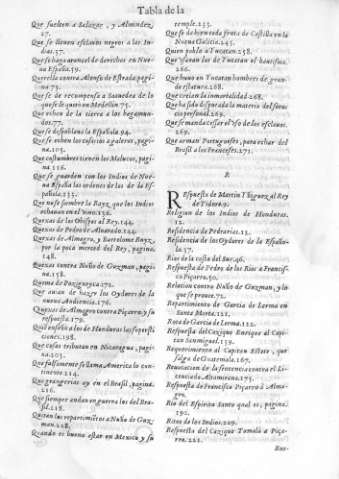 Tabla de la
Que suelten a Salazar, y Almindez,
27.
Que se lleuen esclauos negros a las Indias.37.
Que se haga arancel de derechos en Nueua España.59.
Querella contra Alonso de Estrada. pagina 73.
Que se de recompensa a Saauedra de lo
que se le quitó en Medellin.75.
Que echen de la tierra a los bagamundos.77.
Que se despoblaua la Española.94.
Que se echen los casticos a galeras, pagina.105.
Que costumbres tienen los Malucos, pagina.116.
Que se guarden con los Indios de Nueua España las ordenes de las de la Española.233.
Que no se siembre la Rayz que los Indios
echauan en el vino.136.
Quexas de los Obispos al Rey.144.
Quexas de Pedro de Aluarado.144.
Quexas de Almagro, y Bartolome Ruyz,
por la poca merced del Rey, pagina.
148.
Quexas contra Nuño de Guzman, pagina.158.
Quema de
Que auian de hazer los Oydores de la
nueua Audiencia.176.
Quexas de Almagro contra Piçarro y su
respuesta.179.
Quil enseñò a los de Honduras las supersticiones.198.
Que casas tributan en Nicaragua, pagina.205.
Que falsamente se llama America lo continente.214.
Que grangerias ay en el Brasil, pagina.
216.
Que siempre andan en guerra los del Brasil.218.
Quitan los repartimiẽtos a Nuño de Guzman.228.
Quando es bueno estar en Mexico y su
temple.233.
Que se de bien toda fruta de Castilla en la
Nueua Galicia.245.
Quien poblo a Yucatan.258.
Que vsauan los de Yucatan el bautismo.
266.
Que huuo en Yucatan hombres de grande estatura.268.
Que creian la inmortalidad.268.
Que ha sido disputada la materia del seruicio personal.269.
Que se manda cessar el vso de los esclauos.
269.
Que arman Portugueses, para echar del
Brasil a los Franceses.271.
R
REspuesta de Martin Yñiguez al Rey
de Tidore.9.
Religion de los Indios de Honduras.
12.
Residencia de Pedrarias.13.
Residencia de los Oydores de la Española.37.
Rios de la costa del Sur.46.
Respuesta de Pedro de los Rios a Francisco Piçarro.50.
Relacion contra Nuño de Guzman, y lo
que se prouee.72.
Repartimiento de Garcia de Lerma en
Santa Marta.122.
Rota de Garcia de Lerma.122.
Respuesta del Cazique Enrique al Capitan Sanmiguel.139.
Requerimiento al Capitan Estete, que
salga de Guatemala.167.
Reuocacion de la sentencia contra el Licenciado Altamirano.175.
Respuesta de Francisco Piçarro à Almagro.
Rio del Espiritu Santo qual es, pagina.
192.
Ritos de los Indios.209.
Respuesta del Cazique Tomalà a Piçarro.222.